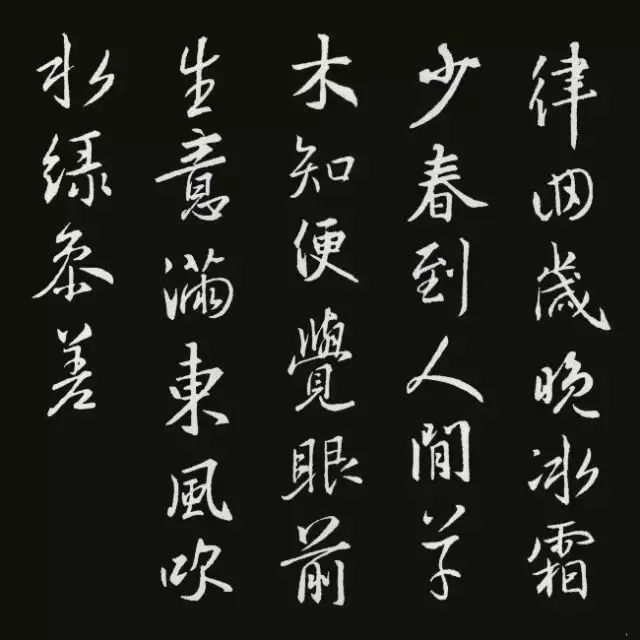 律回歲晚冰霜
少春到人間草
木知便覺眼前
生意滿東風吹
水绿叅差